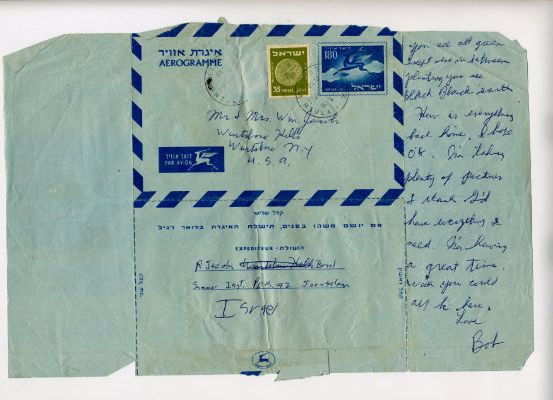 איגרת אוויר
AEROGRAMME
ישראל
35
180
דואר אוויר
ישראל
Mr & Mrs. Wm Jacobs
Hills
N.Y
U.S.A.
דואר אוויר
PAR AVION
קפל שלישי
אם יושם משהו בפנים, תישלח האיגרת בדואר רגיל
השולח-EXPEDITEUR
R Jacobs
Inst. P.O.B. 92 Jerusalem
Israel
קפל שני
קפל ראשון
You see all green
except when in between
planting you see
Black Black earth.
How is everything
back home. I hope
OK. I'm taking
plenty of pictures
& thank G-d
have everything I
need. I'm having
a great time.
wish you could
all be here.
Love
Bob